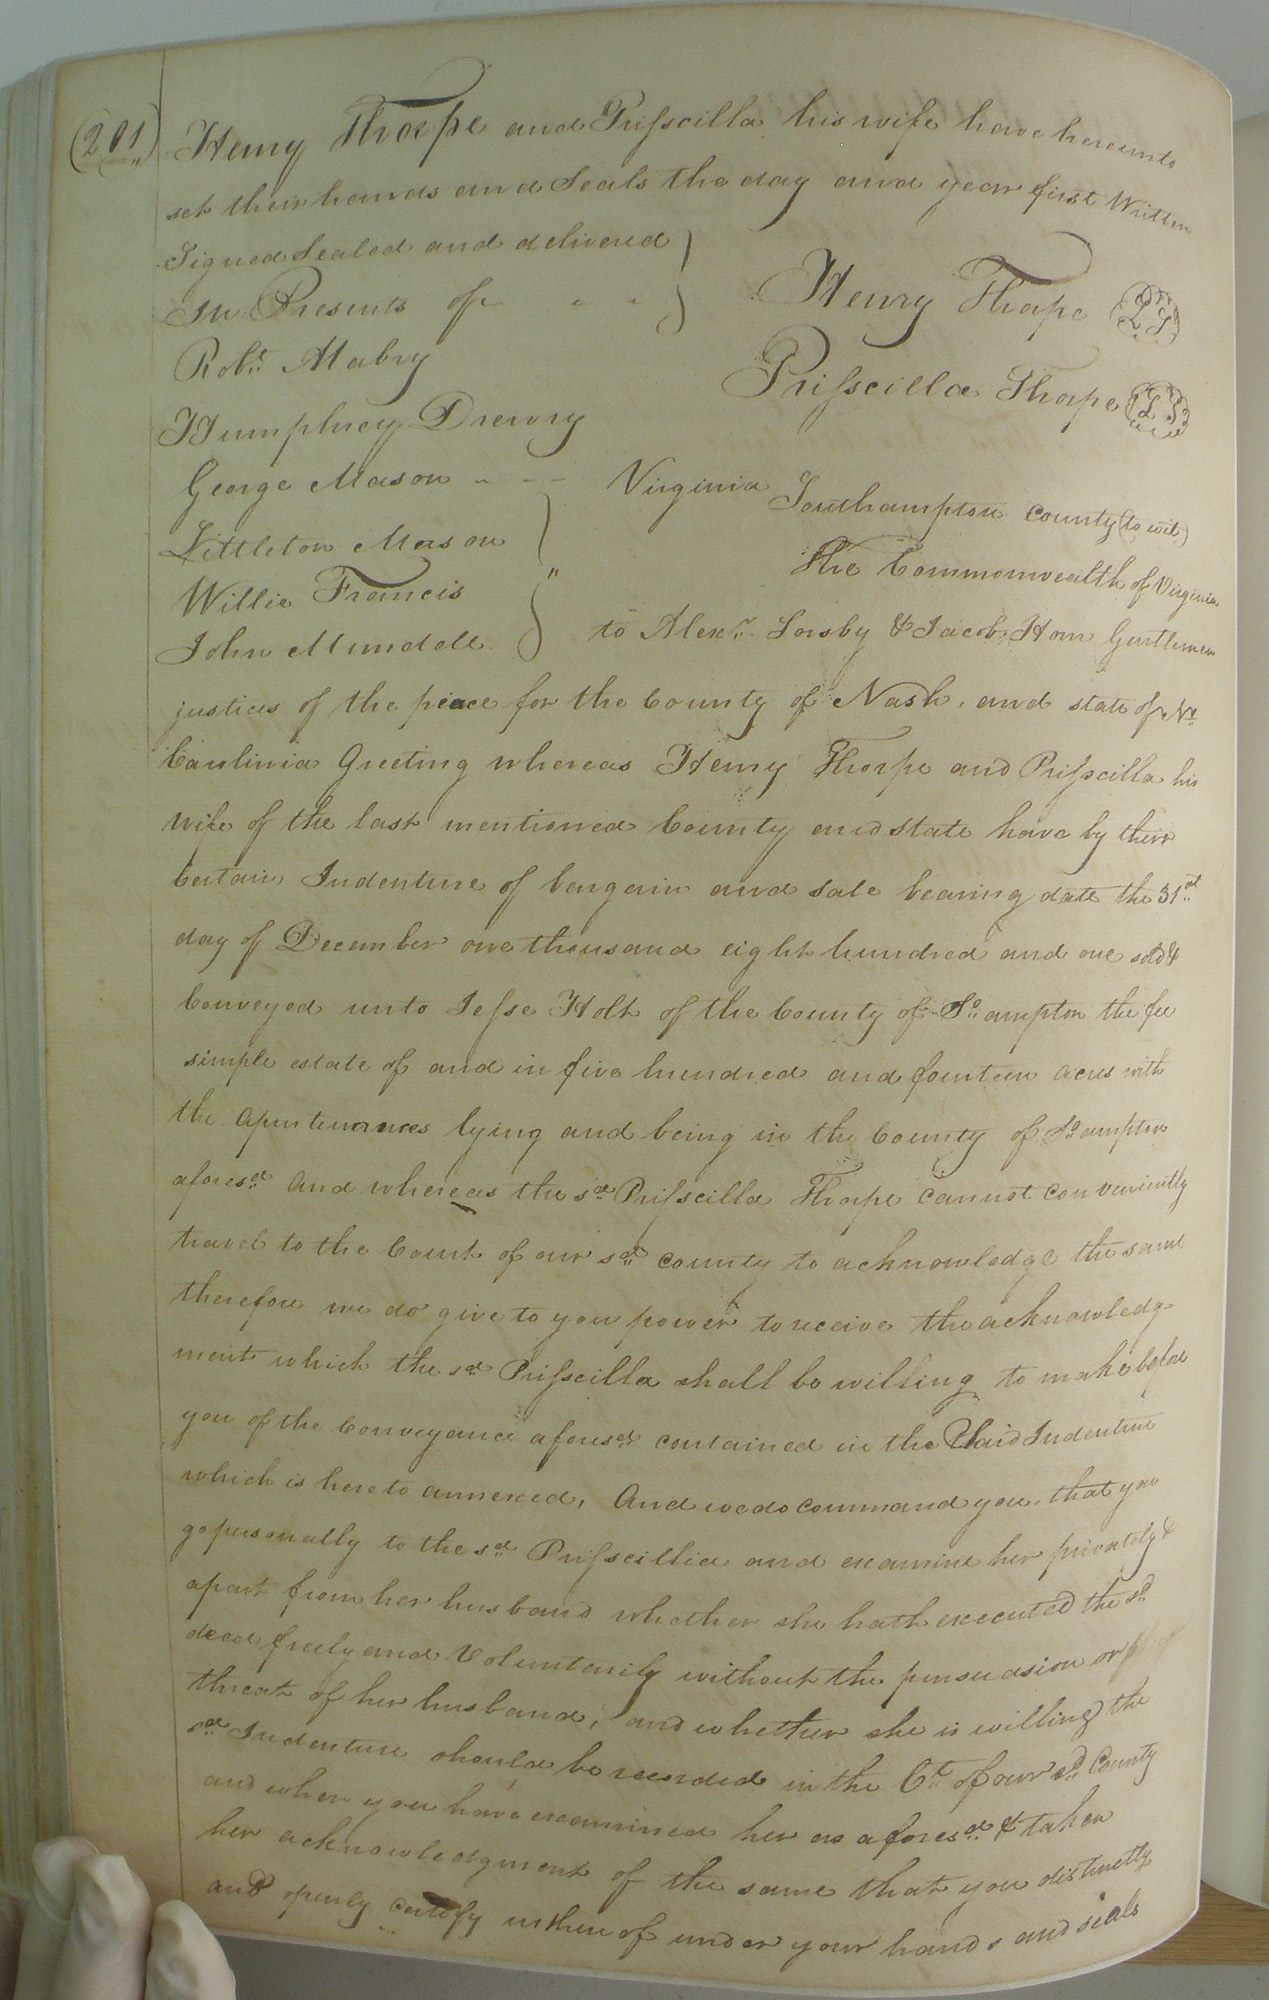 (201")
Henry Thorpe and Prisscilla his wife have hereunto
set their hands and Seals the day and year first Written
Signed Sealed and delivered
In Presents of
Henry Thorpe LS
Robt. Mabry
Prisscilla Thorpe LS
Humphrey Drewry
George Mason
Littleton Mason
Willie Francis
John Mundell
Virginia Southampton County (to wit)
The Commonwealth of Virginia
to Alexr. Sorsby & Jacob Horn Gentlemen
justices of the peace for the County of Nash, and state of No.
Carolinia Greeting whereas Henry Thorpe and Prisscilla his
wife of the last mentioned County and state have by their
Certain Indenture of bargain and sale bearing date the 31st
day of December one thousand eight hundred and one sold &
Conveyed unto Jesse Holt of the County of So.ampton the fee
simple estate of and in five hundred and fourteen acres with
the apurtenances lying and being in the County of So.ampton
aforesd. And whereas the sd. Prisscilla Thorpe cannot conveniently
travel to the Court of our sd. county to acknowledge the same
therefore we do give to you power to receive the acknowledg
ment which the sd. Prisscilla shall be willing to make before
you of the Conveyance aforesd. contained in the Said Indenture
which is hereto annexed, And we do command you, that you
go personally to the sd. Prisscillia and examine her privately &
apart from her husband whether she hath executed the sd.
deed freely and Voluntarily without the persuasion or
threat of her husband, and whether she is willing the
sd. Indenture should be recorded in the Ct. of our sd. County
and when you have examined her as aforesd. & taken
her acknowledgment of the same that you distinctly
and openly certify us thereof under your hands and seals